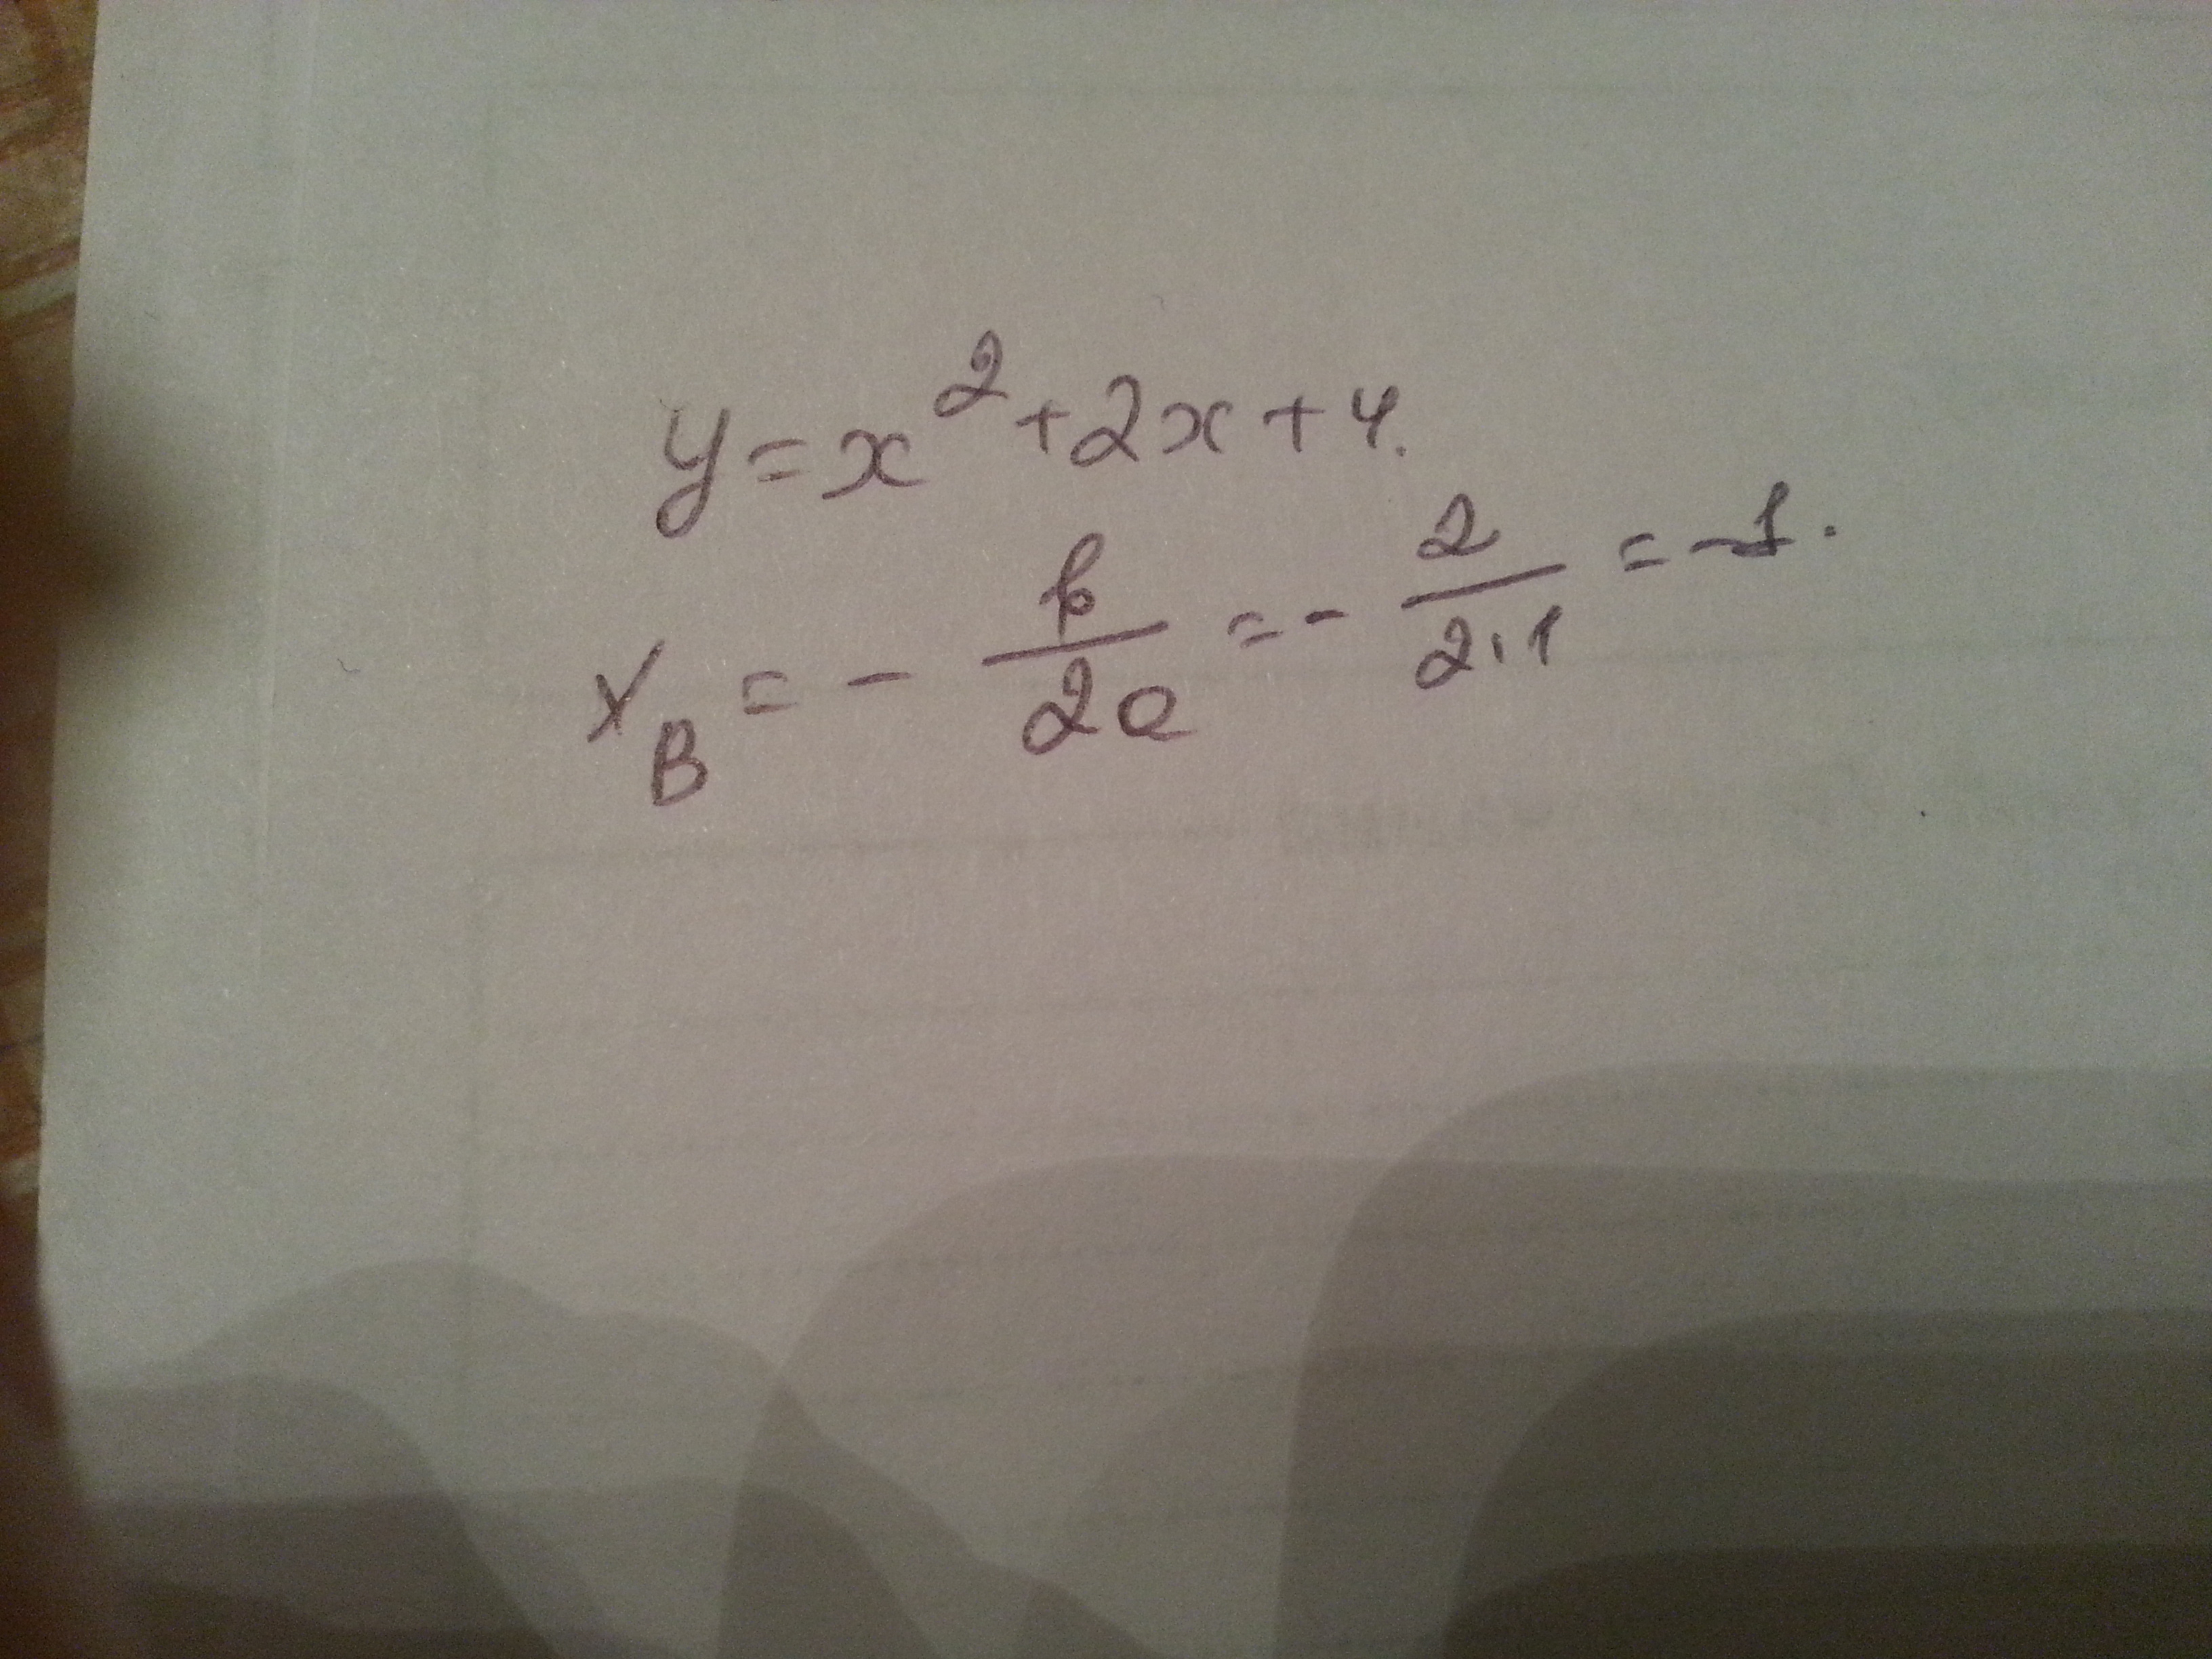 y = x² + 2x + 4.
x_B = - b/2a = - 2/2·1 = -1.